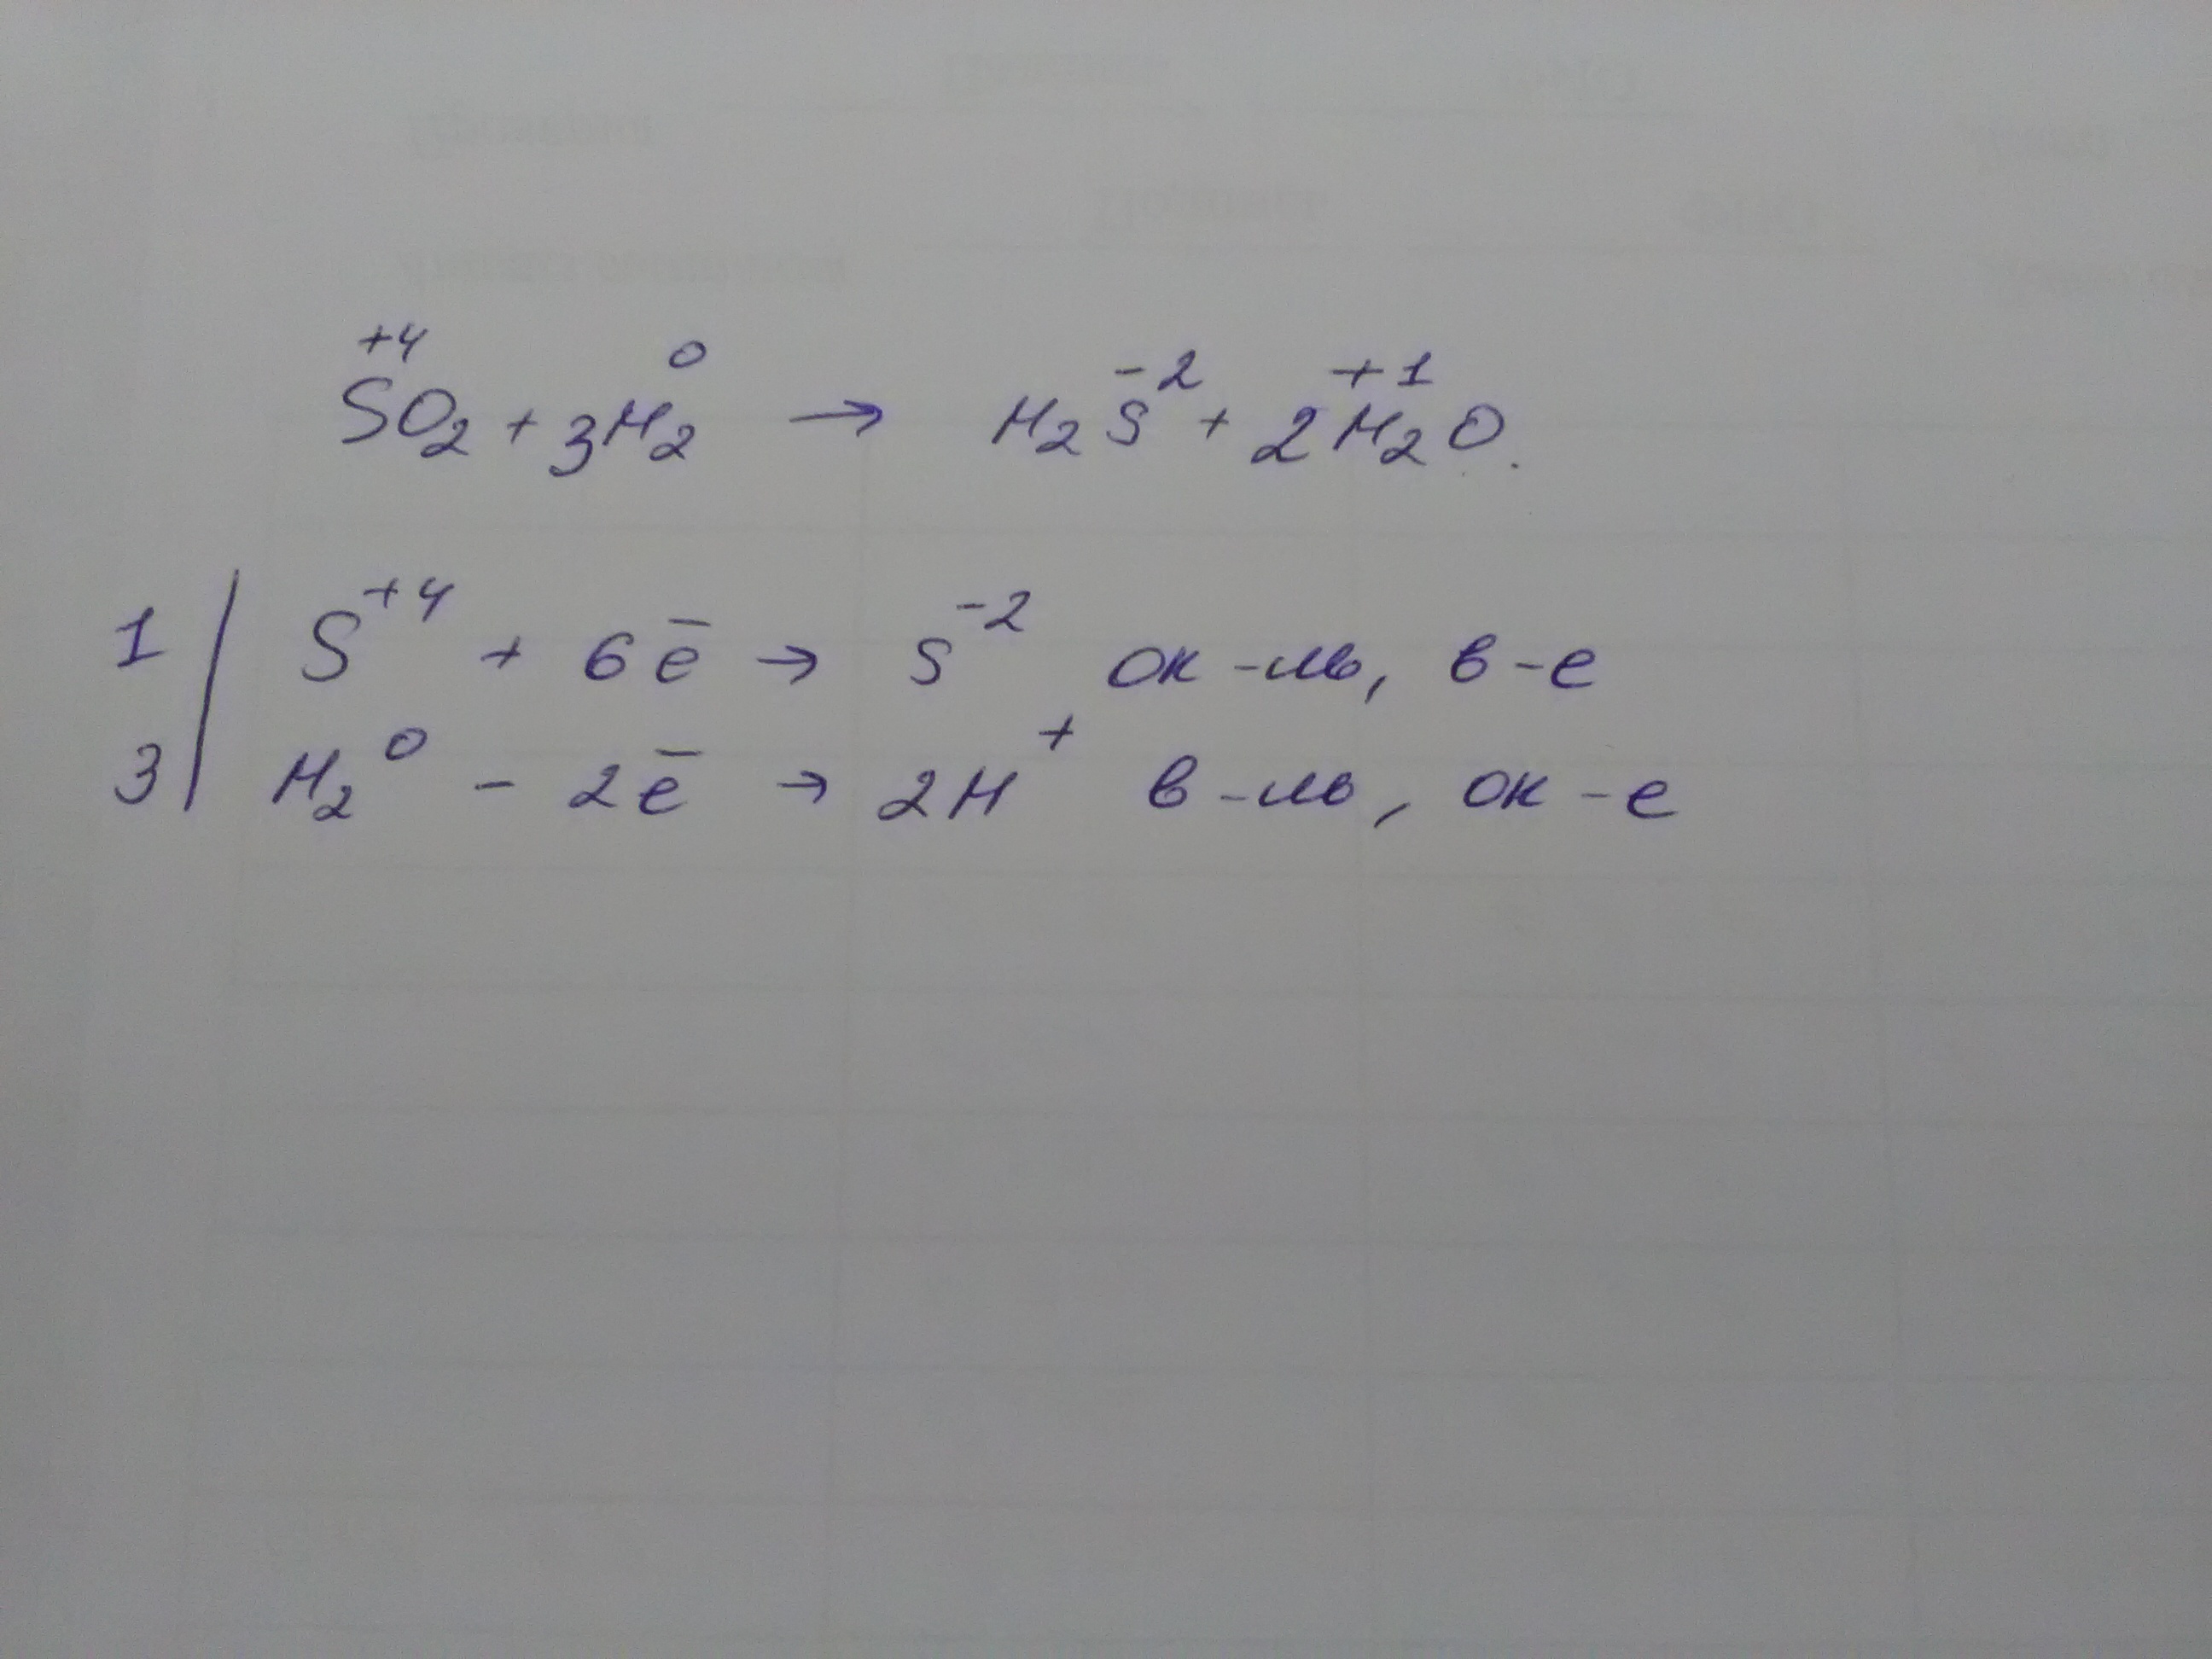 +4 0 -2 +1
SO₂ + 3H₂ → H₂S + 2H₂O.
1 | S⁺⁴ + 6ē → S⁻² ок-ль, в-е
3 | H₂⁰ - 2ē → 2H⁺ в-ль, ок-е